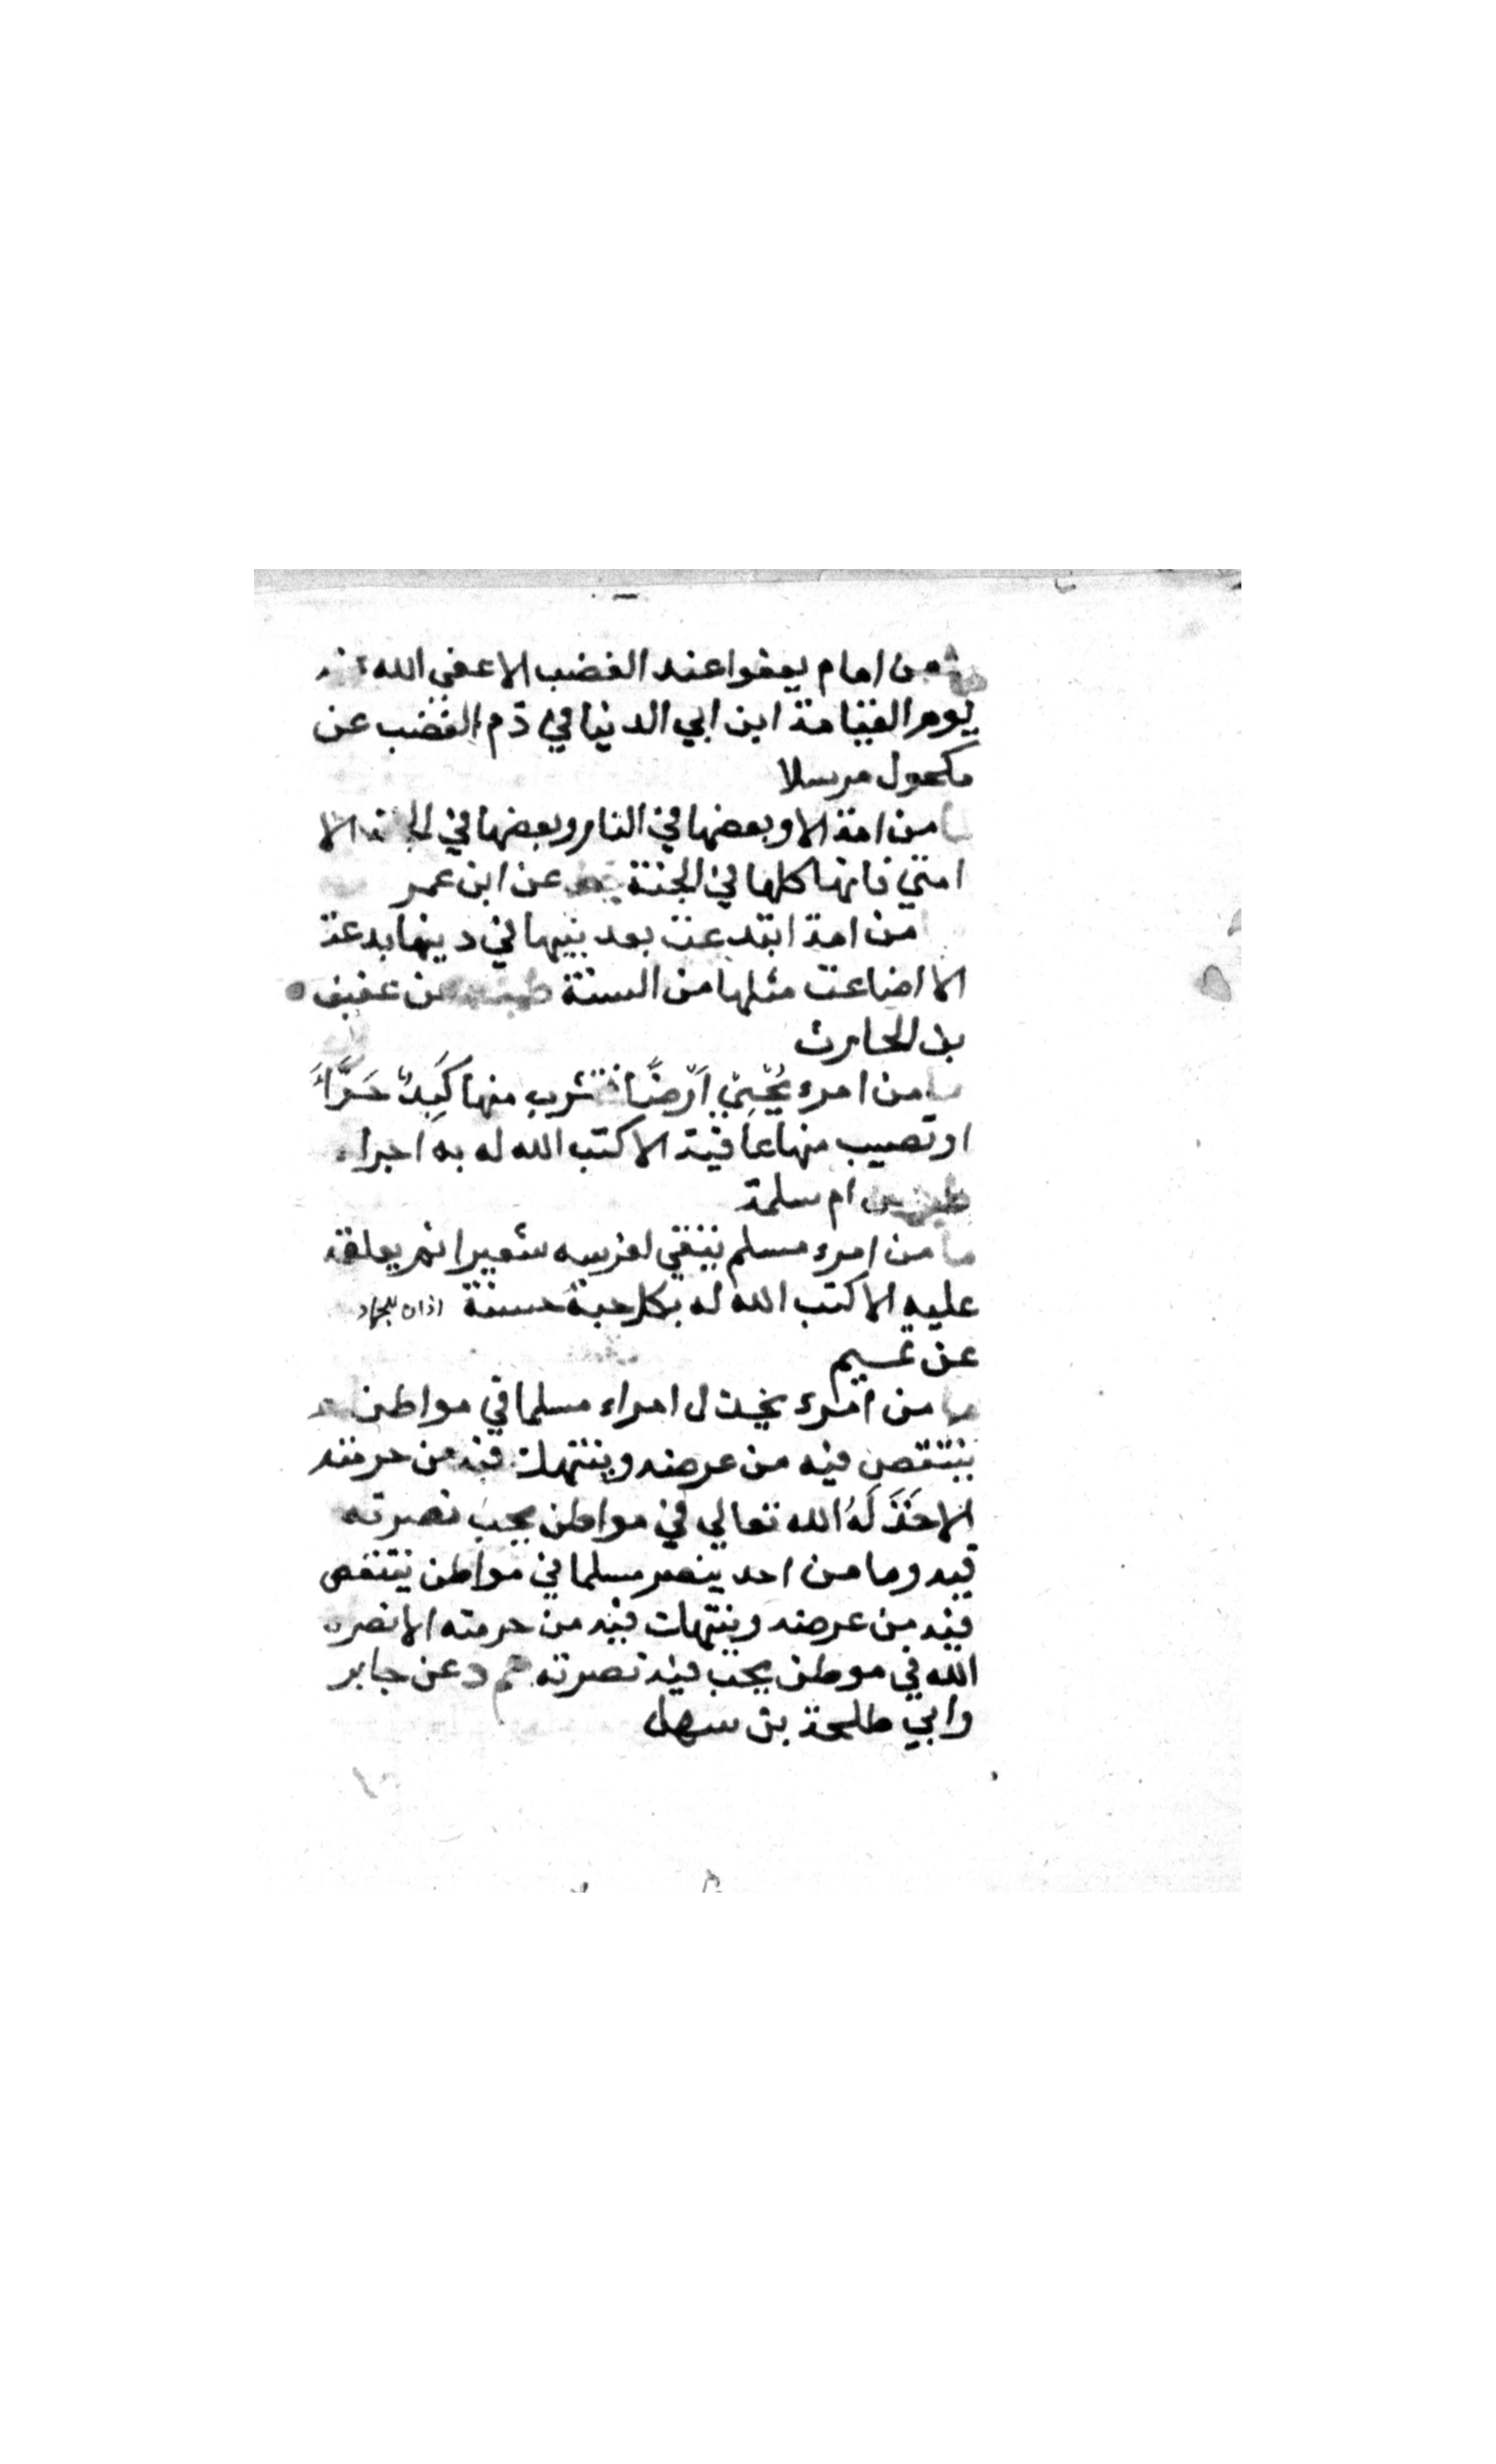 من امام يعفوا عند الغضب الا عفى الله عنه
يوم القيامة ابن ابي الدنيا في ذم الغضب عن
مكحول مرسلا
ما من امة الا وبعضها في النار وبعضها في الجنة الا
امتي فانها كلها في الجنة خط عن ابن عمر
من امة ابتدعت بعد نبيها في دينها بدعة
الا اضاعت مثلها من السنة طب عن غفيف
بن الحارث
ما من امرء يُحْيِيْ اَرْضًا فتشرب منها كَبِدٌ حَرَّاءَ
او تصيب منها عافية الا كتب الله له به اجرا
طب عن ام سلمة
ما من امرء مسلم ينقي لفرسه شعيرا ثم يعلقه
عليه الا كتب الله له بكل حبة حسنة
عن تميم
ما من امرء يخذل امراء مسلما في مواطن
ينتقص فيه من عرضه وينتهك فيه من حرمته
الا خَذَلَهُ الله تعالي في مواطن يحب نصرته
فيه وما من احد ينصر مسلما في مواطن ينتقص
فيه من عرضه وينتهك فيه من حرمته الا نصره
الله في موطن يحب فيه نصرته حم د عن جابر
وابي طلحة بن سهل